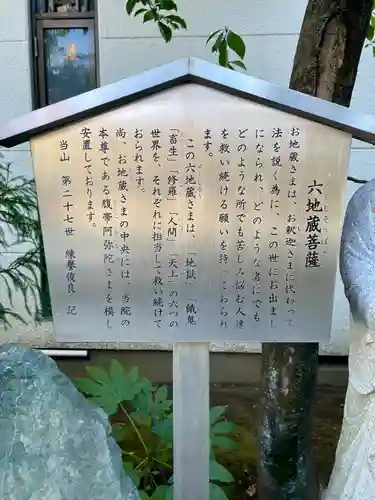 六地蔵菩薩
ろくじぞうぼさつ
お地蔵さまは、お釈迦さまに代わって
法を説く為に、この世にお出まし
になられ、どのような者にでも
どのような所でも苦しみ悩む人達
を救い続ける願いを持っておられ
ます。
この六地蔵さまは、「地獄」「餓鬼
「畜生」「修羅」「人間」「天上」の六つの
世界を、それぞれに担当して救い続けて
おられます。
尚、お地蔵さまの中央には、当院の
本尊である腹帯阿弥陀さまを模し
安置しております。
当山 第二十七世 練誉俊良 記